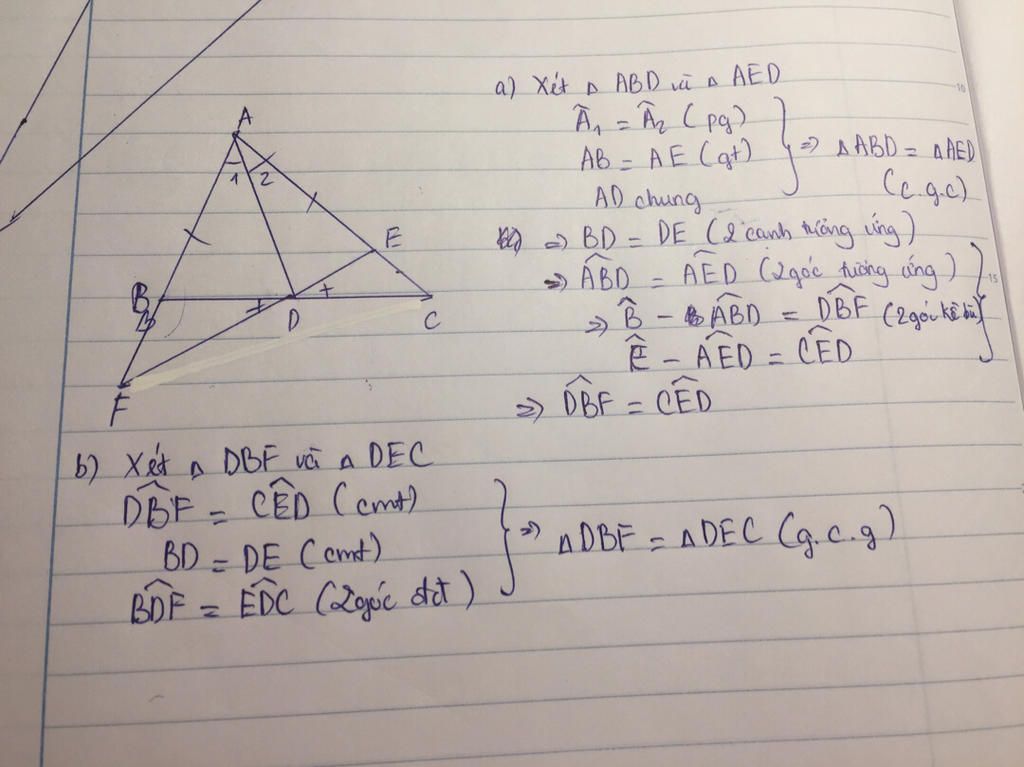 a) Xét △ ABD và △ AED
Â₁ = Â₂ (pg)
AB = AE (gt)
AD chung
} ⇒ △ABD = △AED
(c.g.c)
⇒ BD = DE (2 cạnh tương ứng)
⇒ ABD̂ = AED̂ (2 góc tương ứng)
⇒ B̂ - ABD̂ = DBF̂ (2 góc kề bù)
Ê - AED̂ = CED̂
⇒ DBF̂ = CED̂
A
1 2
E
B
D
C
F
b) Xét △ DBF và △ DEC
DBF̂ = CED̂ (cmt)
BD = DE (cmt)
BDF̂ = EDĈ (2 góc đđ)
} ⇒ △DBF = △DEC (g.c.g)
10
15